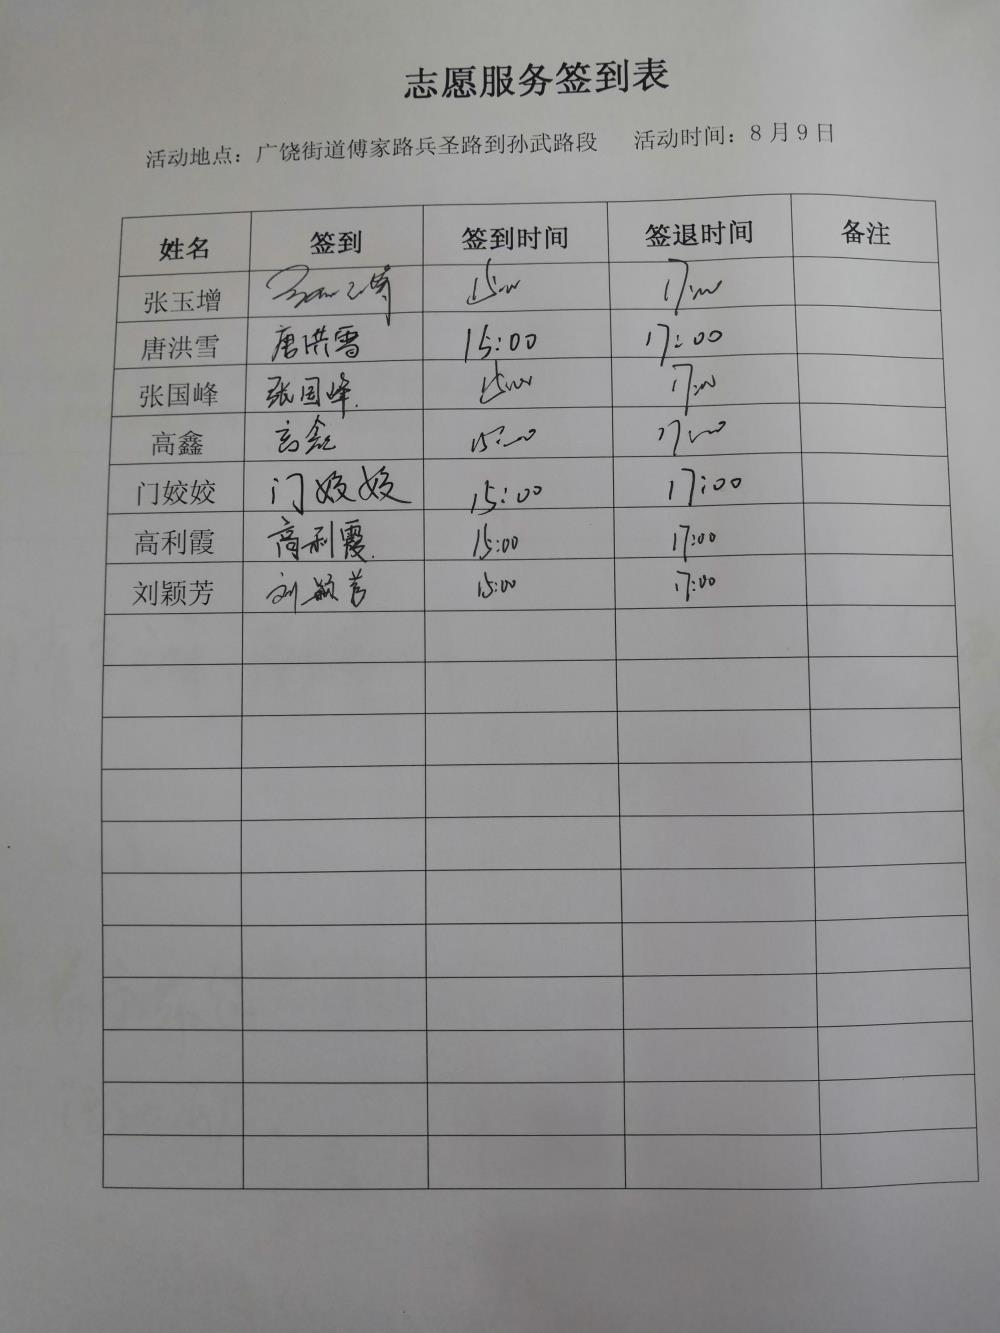 志愿服务签到表
活动地点：广饶街道傅家路兵圣路到孙武路段 活动时间：8月9日
姓名 签到 签到时间 签退时间 备注
张玉增 张玉增 15:00 17:00
唐洪雪 唐洪雪 15:00 17:00
张国峰 张国峰. 15:00 17:00
高鑫 高鑫 15:00 17:00
门姣姣 门姣姣 15:00 17:00
高利霞 高利霞. 15:00 17:00
刘颖芳 刘颖芳 15:00 17:00